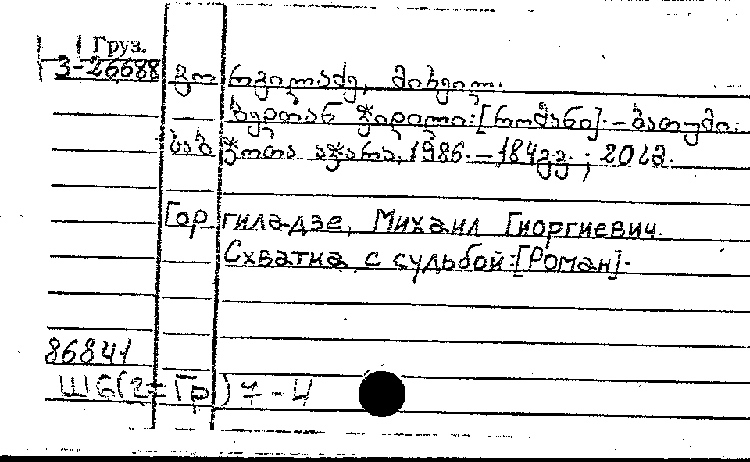 Груз.
3-26688 გორგილაძე, მიხეილ.
ბედთან ჭიდილი: [რომანი]. – ბათუმი:
საბჭოთა აჭარა, 1986. – 184გვ. ; 20სმ.
Горгиладзе, Михаил Гиоргиевич.
Схватка с судьбой: [Роман].
86841
Ш6(2=Гр)7-4